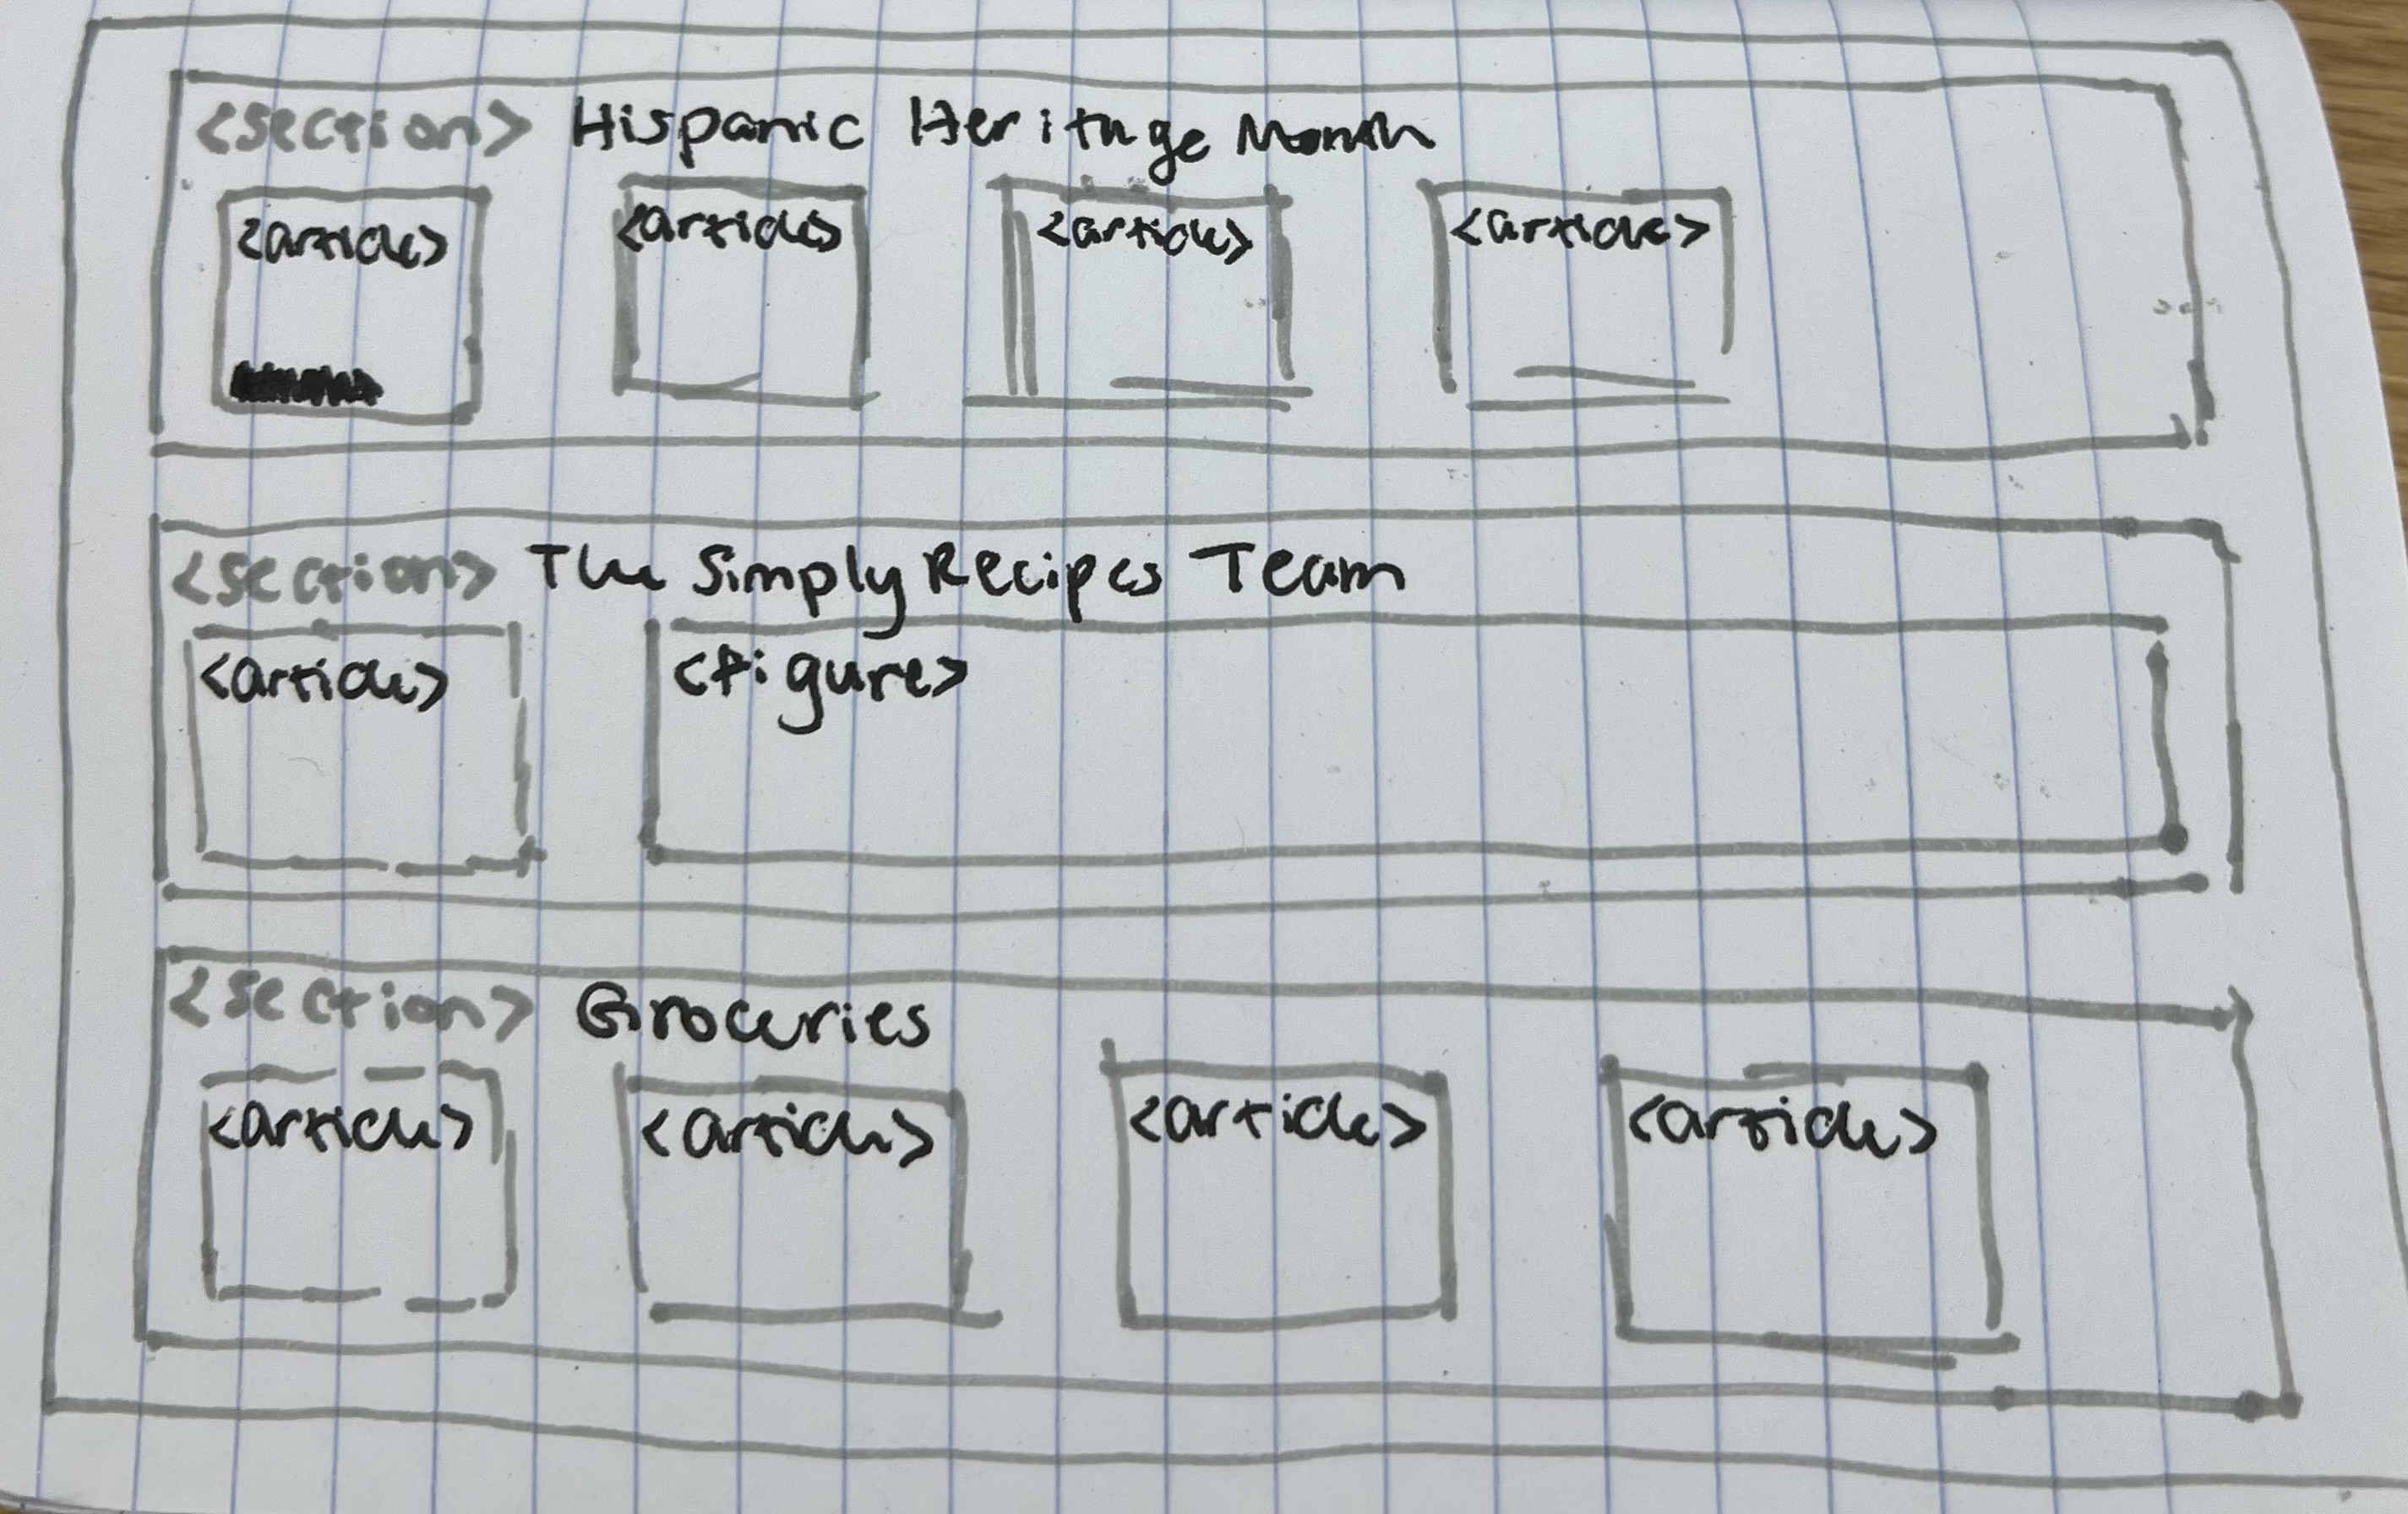 <section> Hispanic Heritage Month
<article> <article> <article> <article>
<section> The Simply Recipes Team
<article> <figure>
<section> Groceries
<article> <article> <article> <article>